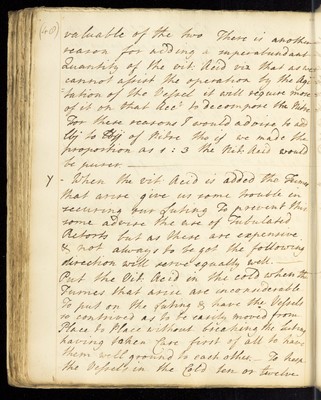 (40)
valuable of the two There is another
reason for adding a superabundant
Quantity of the vit. Acid viz that as we
cannot assist the operation by the Agi-
-tation of the Vessel it will require more
of it on that Acct to decompose the Nitre
For these reasons I would advise to add
of Nitre tho if we made the
proportion as 1 : 3 the Nit. Acid would
be purer.
y - When the vit. Acid is added the Fumes
that arise give us some trouble in
securing our Luting To prevent this
some advise the use of Tubulated
Retorts but as these are expensive
& not always to be got the following
direction will serve equally well. —
Put the Vit. Acid in the cold when the
Fumes that arise are inconsiderable
To put on the Luting & have the Vessels
so contrived as to be easily moved from
Place to Place without breaking the Luting
having taken Care first of all to have
them well ground to each other. — To keep
the Vessels in the Cold ten or twelve